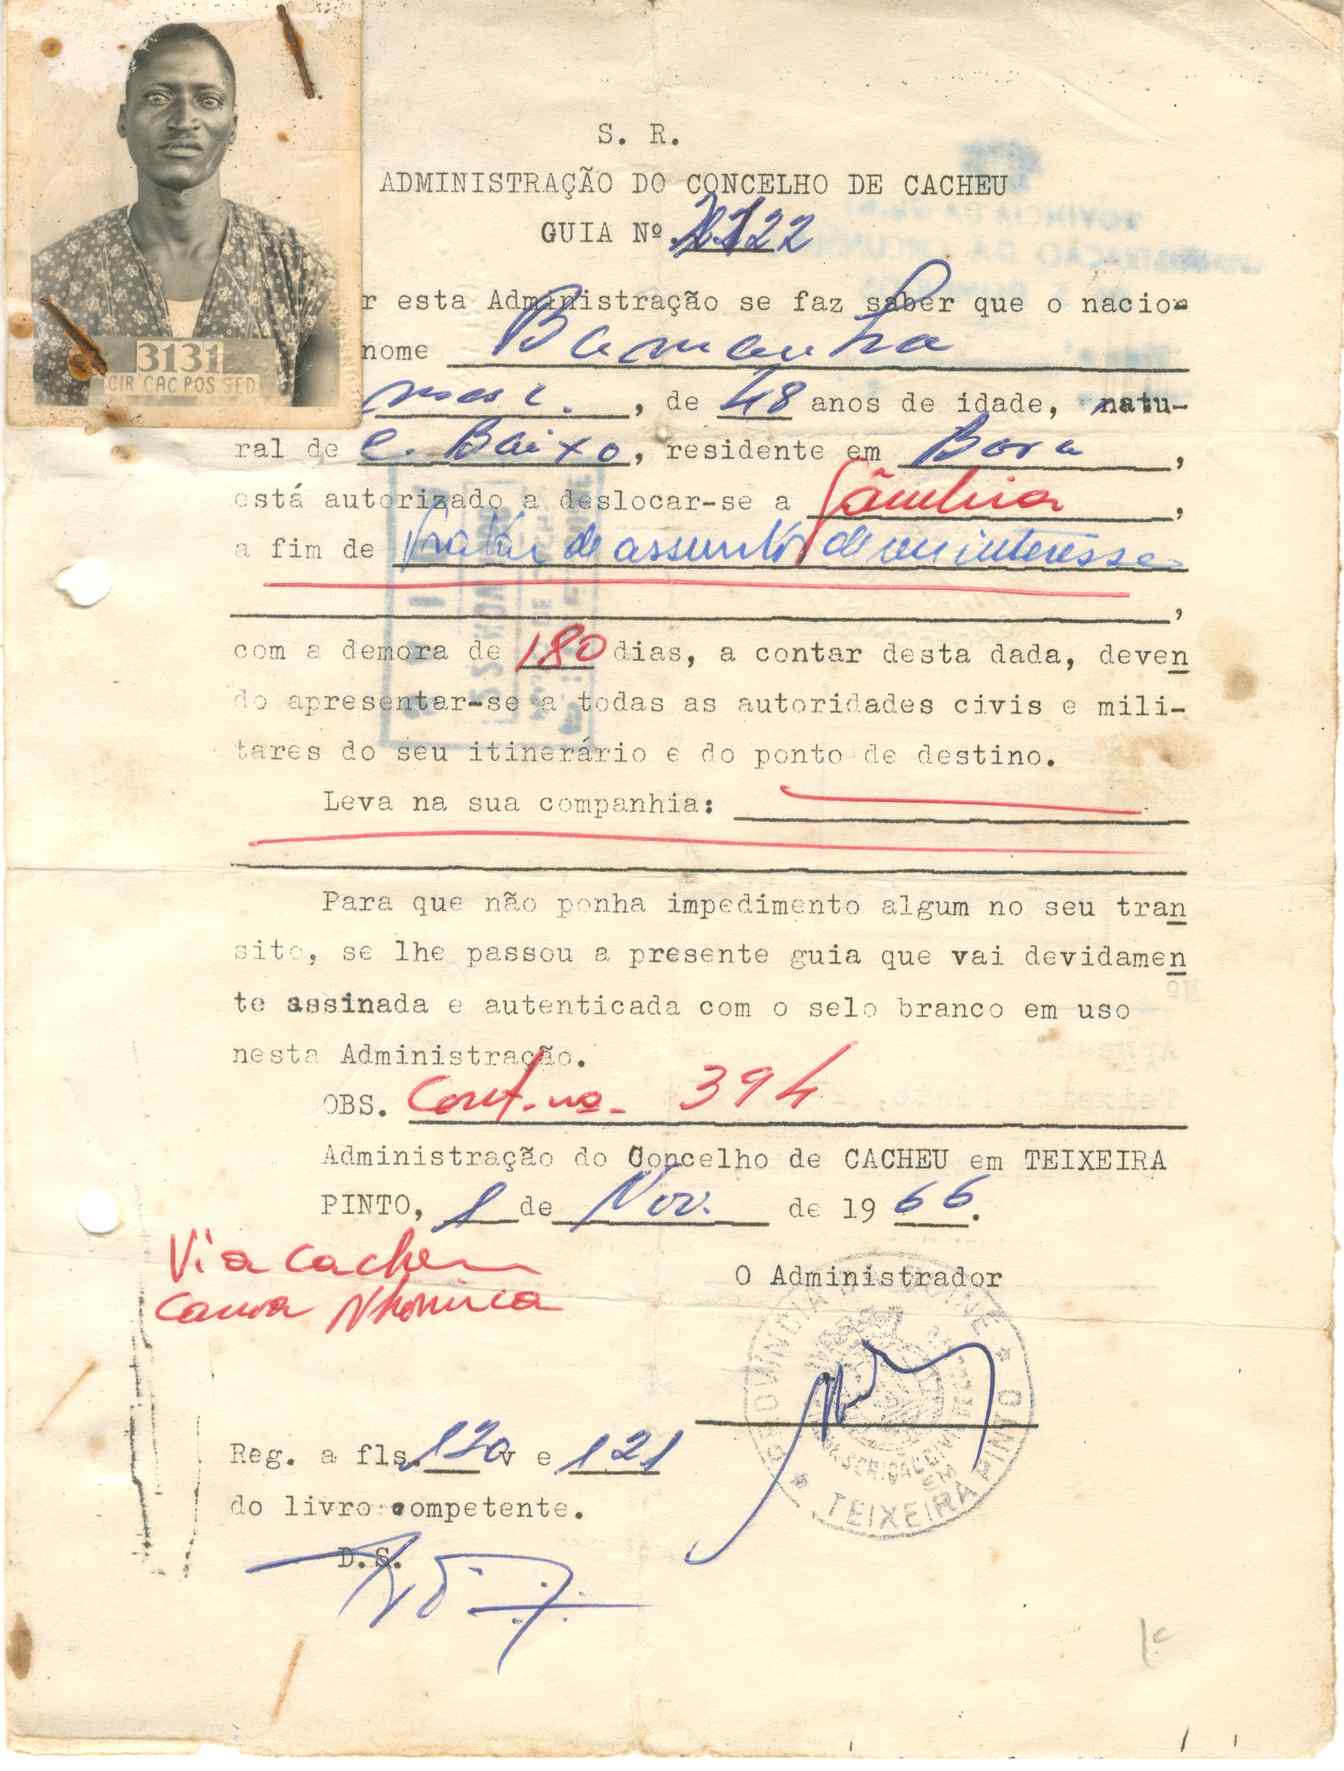 S. R.
ADMINISTRAÇÃO DO CONCELHO DE CACHEU
GUIA Nº
r esta Administração se faz saber que o nacio-
nome Bamanha
masc., de 48 anos de idade, natu-
ral de C. Baixo, residente em Bora,
está autorizado a deslocar-se a Gâmbia,
a fim de Tratar de assuntos de seu interesse
,
com a demora de 180 dias, a contar desta dada, deven
do apresentar-se a todas as autoridades civis e mili-
tares do seu itinerário e do ponto de destino.
Leva na sua companhia:
Para que não ponha impedimento algum no seu tran
sito, se lhe passou a presente guia que vai devidamen
te assinada e autenticada com o selo branco em uso
nesta Administração.
OBS. Cont. nº. 394
Administração do Concelho de CACHEU em TEIXEIRA
PINTO, 8 de Nov. de 1966.
Via Cacheu
O Administrador
PROVINCIA DA GUINÉ * TEIXEIRA PINTO *
Reg. a fls. 120 v e 121
do livro competente.
D.S.
3131
CIR CAC POS SED